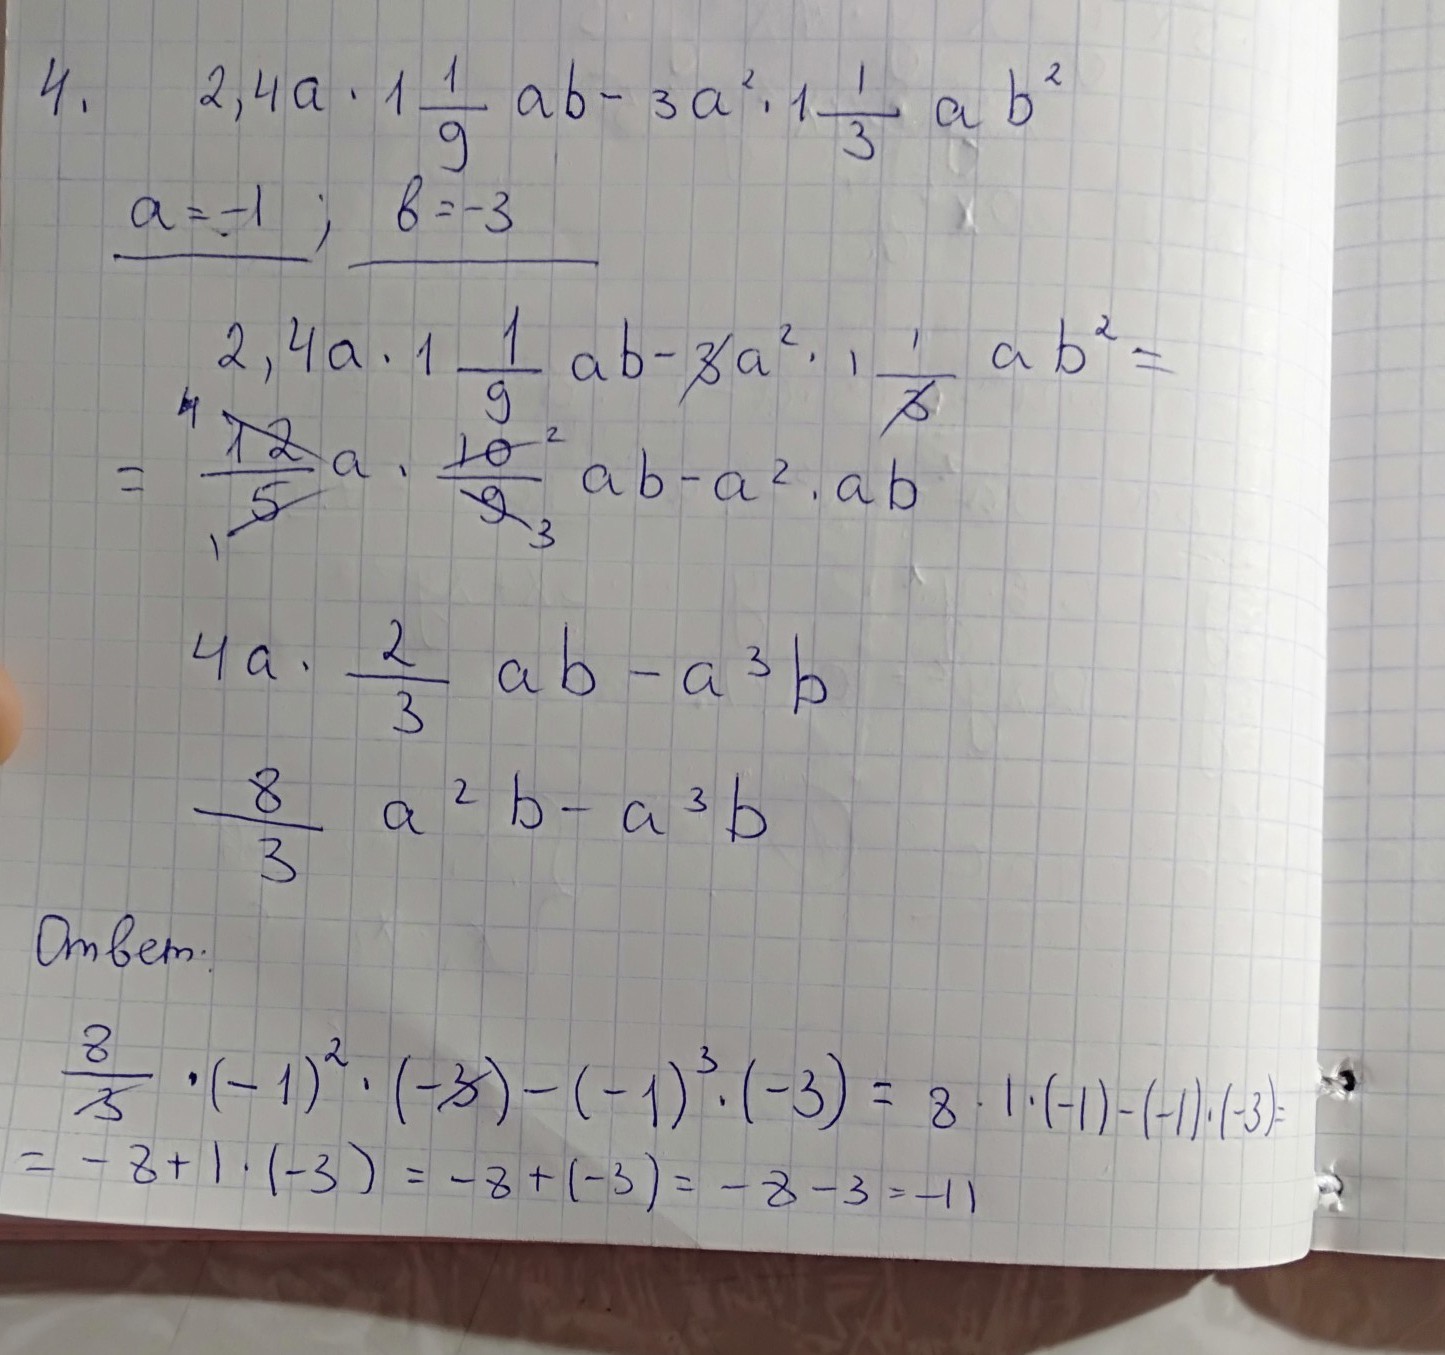 4. 2,4a · 1 1/9 ab - 3a² · 1 1/3 ab²
a = -1 ; b = -3
2,4a · 1 1/9 ab - 3a² · 1 1/3 ab² =
= 4 12/5 1 a · 10 2/9 3 ab - a² · ab
4a · 2/3 ab - a³b
8/3 a²b - a³b
Ответ:
8/3 · (-1)² · (-3) - (-1)³ · (-3) = 8 · 1 · (-1) - (-1) · (-3) =
= -8 + 1 · (-3) = -8 + (-3) = -8 - 3 = -11